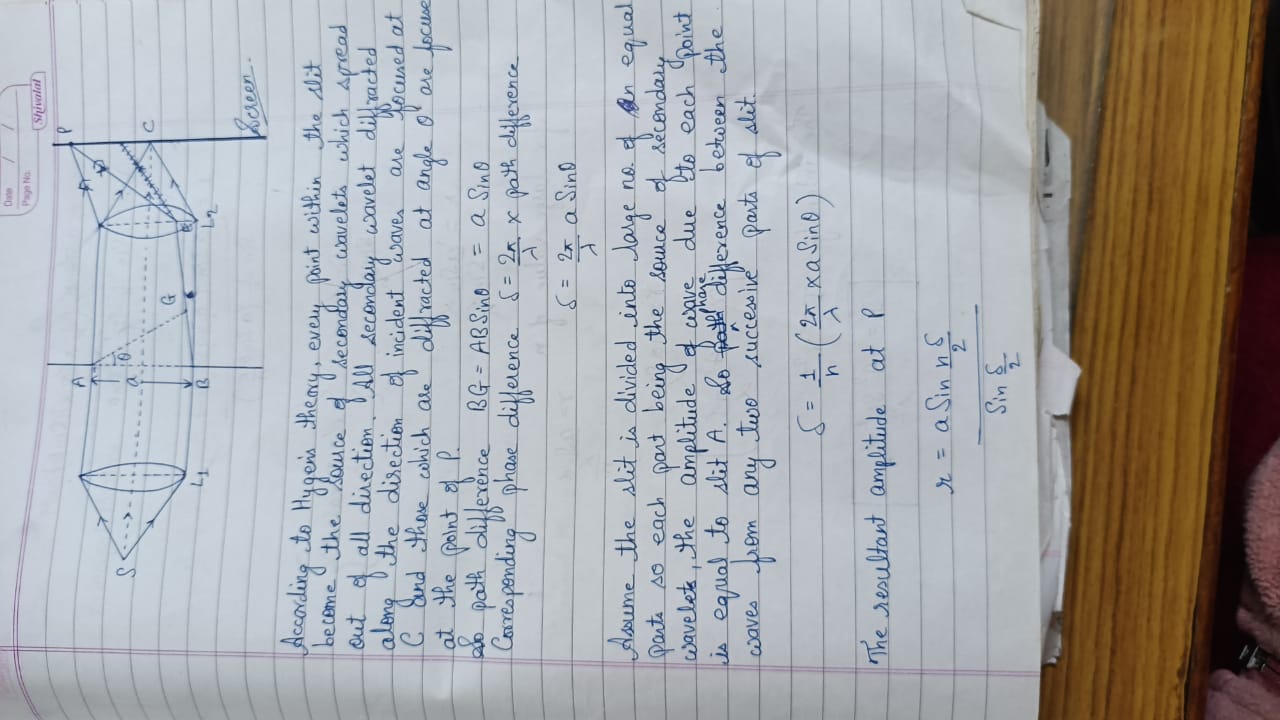 Date / /
Page No.
Shivalal
S
L1
A
θ
a
B
G
L2
P
C
Screen.
According to Hygens theory, every point within the slit
become the source of secondary wavelets which spread
out of all direction. All secondary wavelet diffracted
along the direction of incident waves are focused at
C and those which are diffracted at angle θ are focuse
at the point of P.
So path difference BG = AB Sinθ = a Sinθ
Corresponding phase difference δ = 2π/λ x path difference
δ = 2π/λ a Sinθ
Assume the slit is divided into large no. of n equal
parts so each part being the source of secondary
wavelets, the amplitude of wave due to each point
is equal to slit A. So phase difference between the
waves from any two successive parts of slit.
δ = 1/n (2π/λ x a Sinθ)
The resultant amplitude at P
r = a Sin nδ/2
Sin δ/2